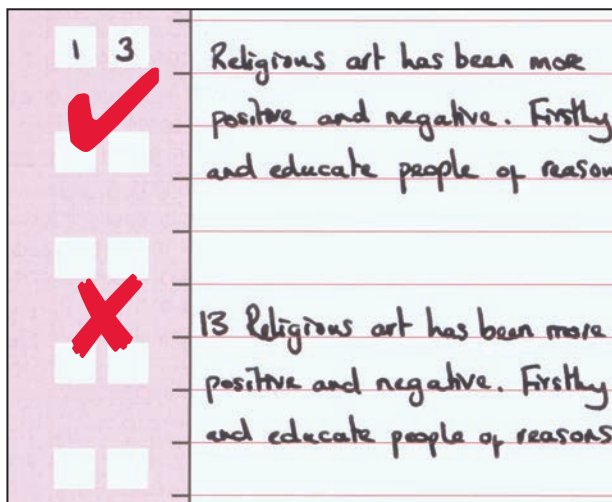 1 3 Religious art has been more
positive and negative. Firstly
and educate people of reason
13 Religious art has been more
positive and negative. Firstly
and educate people of reasons